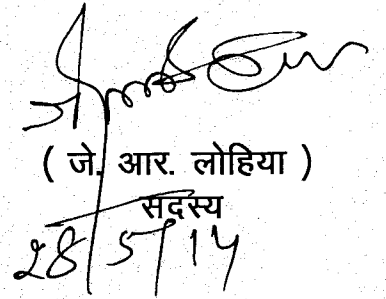 ( जे. आर. लोहिया )
सदस्य
28/5/14